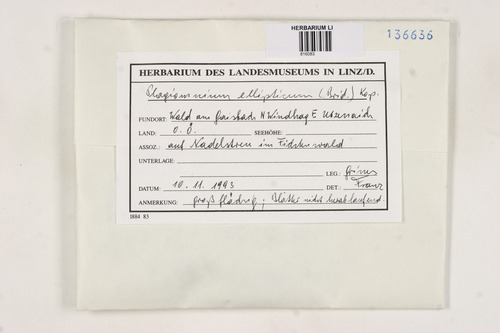 HERBARIUM LI
616083
136636
HERBARIUM DES LANDESMUSEUMS IN LINZ/D.
Plagiomnium ellipticum (Brid.) Kop.
FUNDORT: Wald am N Windhag E
LAND: O.Ö. SEEHÖHE:
ASSOZ.: auf Nadelstreu im Fichtenwald
UNTERLAGE:
LEG.: Grims
DATUM: 10.11.1993 DET.: Franz
ANMERKUNG: großflächig; Blätter nicht herablaufend
I884 83